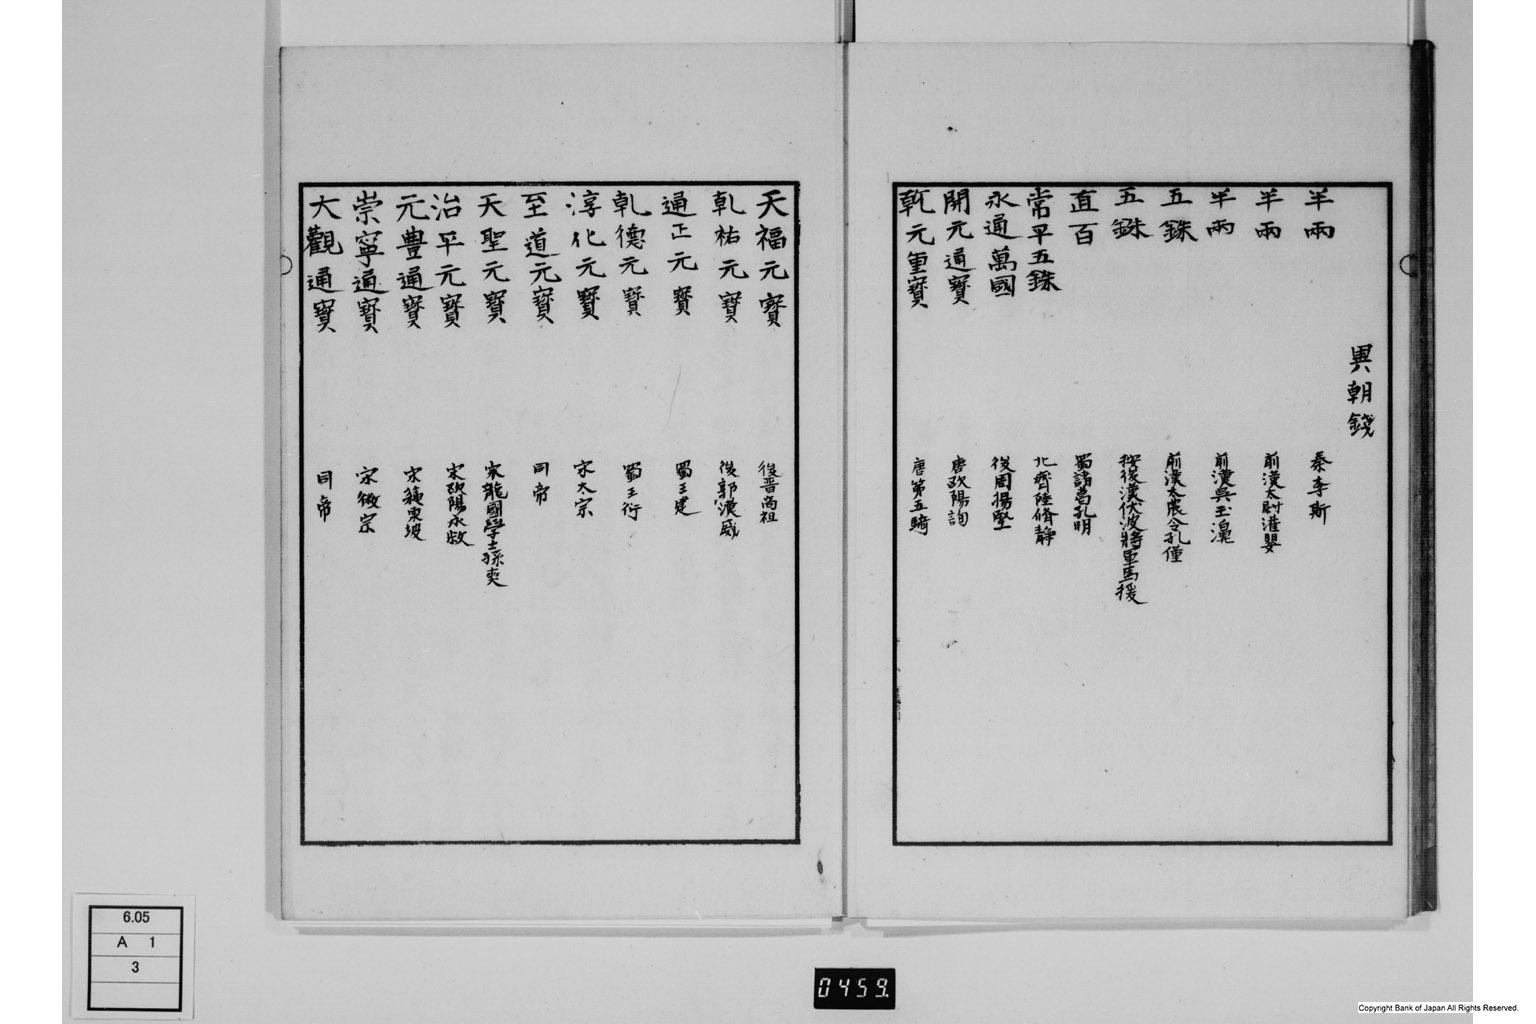 異朝錢
半兩 秦李斯
半兩 前漢太尉灌嬰
半兩 前漢吳王濞
五銖 前漢太農令孔僅
五銖 後漢伏波將軍馬援
直百 蜀諸葛孔明
常平五銖 北齊陸脩静
永通萬國 後周揚堅
開元通寳 唐欧陽詢
乾元重寳 唐第五琦
天福元寳 後晋高祖
乹祐元寳 後郭漢威
通正元寳 蜀王建
乹德元寳 蜀王衍
淳化元寳 宋太宗
至道元寳 同帝
天聖元寳 宋龍圖學士孫奭
治平元寳 宋欧陽永叔
元豊通寳 宋蘇東坡
崇寧通寳 宋徽宗
大觀通寳 同帝
6.05
A 1
3
0459.
Copyright Bank of Japan All Rights Reserved.